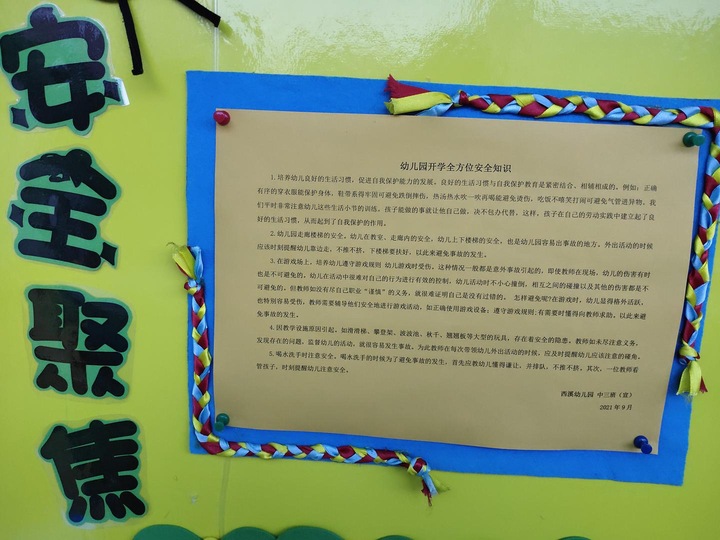 安全聚焦
幼儿园开学全方位安全知识
1.培养幼儿良好的生活习惯，促进自我保护能力的发展。良好的生活习惯与自我保护教育是紧密结合、相辅相成的。例如：正确
有序的穿衣服能保护身体，鞋带系得牢固可避免跌倒摔伤，热汤热水吹一吹再喝能避免烫伤，吃饭不嘻笑打闹可避免气管进异物。我
们平时非常注意幼儿这些生活小节的训练。孩子能做的事就让他自己做，决不包办代替。这样，孩子在自己的劳动实践中建立起了良
好的生活习惯，从而起到了自我保护的作用。
2.幼儿园走廊楼梯的安全。幼儿在教室、走廊内的安全，幼儿上下楼梯的安全，也是幼儿园容易出事故的地方，外出活动的时候
应该时刻提醒幼儿靠边走，不推不挤，下楼梯要扶好，以此来避免事故的发生。
3.在游戏场上，培养幼儿遵守游戏规则 幼儿游戏时受伤。这种情况一般都是意外事故引起的，即使教师在现场，幼儿的伤害有时
也是不可避免的，幼儿在活动中很难对自己的行为进行有效的控制，幼儿活动时不小心撞倒，相互之间的碰撞以及其他的伤害都是不
可避免的。但教师如没有尽自己职业“谨慎”的义务，就很难证明自己是没有过错的。 怎样避免呢?在游戏时，幼儿显得格外活跃，
也特别容易受伤，教师需要辅导他们安全地进行游戏活动，如正确使用游戏设备；遵守游戏规则;有需要时懂得向教师求助。以此来避
免事故的发生。
4.因教学设施原因引起。如滑滑梯、攀登架、波波池、秋千、翘翘板等大型的玩具，存在着安全的隐患。教师如未尽注意义务，
发现存在的问题，监督幼儿的活动，就很容易发生事故。为此教师在每次带领幼儿外出活动的时候，应及时提醒幼儿应该注意的碰角。
5.喝水洗手时注意安全。喝水洗手的时候为了避免事故的发生，首先应教幼儿懂得谦让，并排队，不推不挤，其次，一位教师看
管孩子，时刻提醒幼儿注意安全。
西溪幼儿园 中三班（宣）
2021年9月